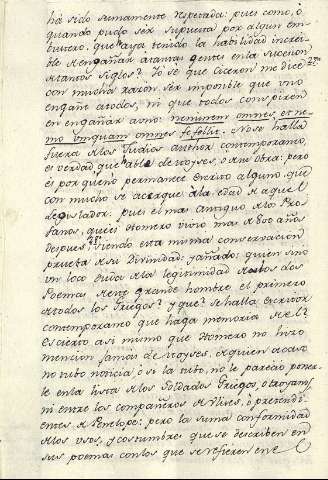 ha sido sumamente respetada: pues como, ò
quando pudo ser supuesta por algun em-
bustero, que aya tenido la habilidad increi-
ble de engañar a tantas gentes en la sucesion
de tantos siglos? Yo se que Ciceron me dice
con mucha razon ser imposible que uno
engañe a todos, ni que todos conspiren
en engañar a uno: neminem omnes, et ne-
mo unquam omnes fefellit. No se halla
fuera de los Judios author contemporaneo,
es verdad, que hable de Moyses, o de su obra: pero
es por que no permanece escrito alguno, que
con mucho se acerque à la edad de aquel
Legislador. pues el mas antiguo de los Pro-
fanos, que es Homero vivio mas de 800 años
despues, siendo esta misma conservacion
prueba de su Divinidad: y añado: quien sino
un loco duda de la legitimidad de los dos
Poemas de este grande hombre el primero
de todos los Griegos? y que? se halla escritor
contemporaneo que haga memoria de el?
Es cierto asi mismo que Homero no hizo
mencion jamas de Moyses, de quien acaso
no tubo noticia; ò si la tubo, no le parecio poner-
le en la lista de los Soldados Griegos, ò troyanos
ni entre los compañeros de Ulises, ò pretendi-
entes de Penelope: pero la suma conformidad
de los usos, y costumbres que se describen en
sus poemas con los que se refieren en el